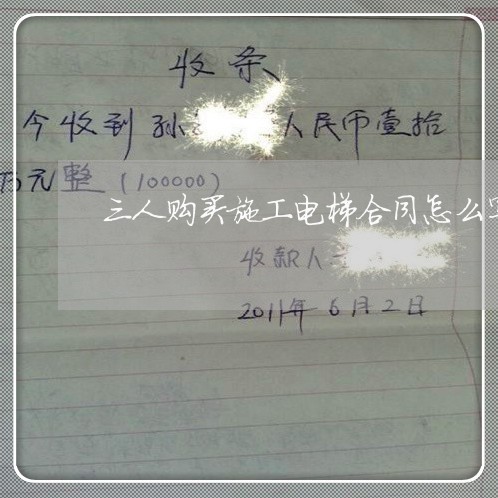 收条
今收到孙 人民币壹拾
万元整(100000)
三人购买施工电梯合同怎么写
收款人
2011年6月2日